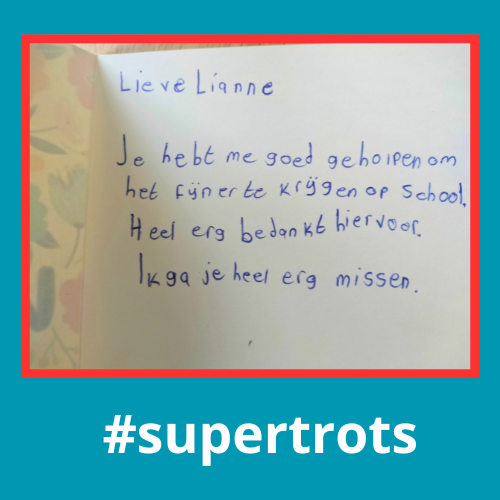 Lieve Lianne
Je hebt me goed geholpen om
het fijner te krijgen op School.
Heel erg bedankt hiervoor.
Ik ga je heel erg missen.
#supertrots